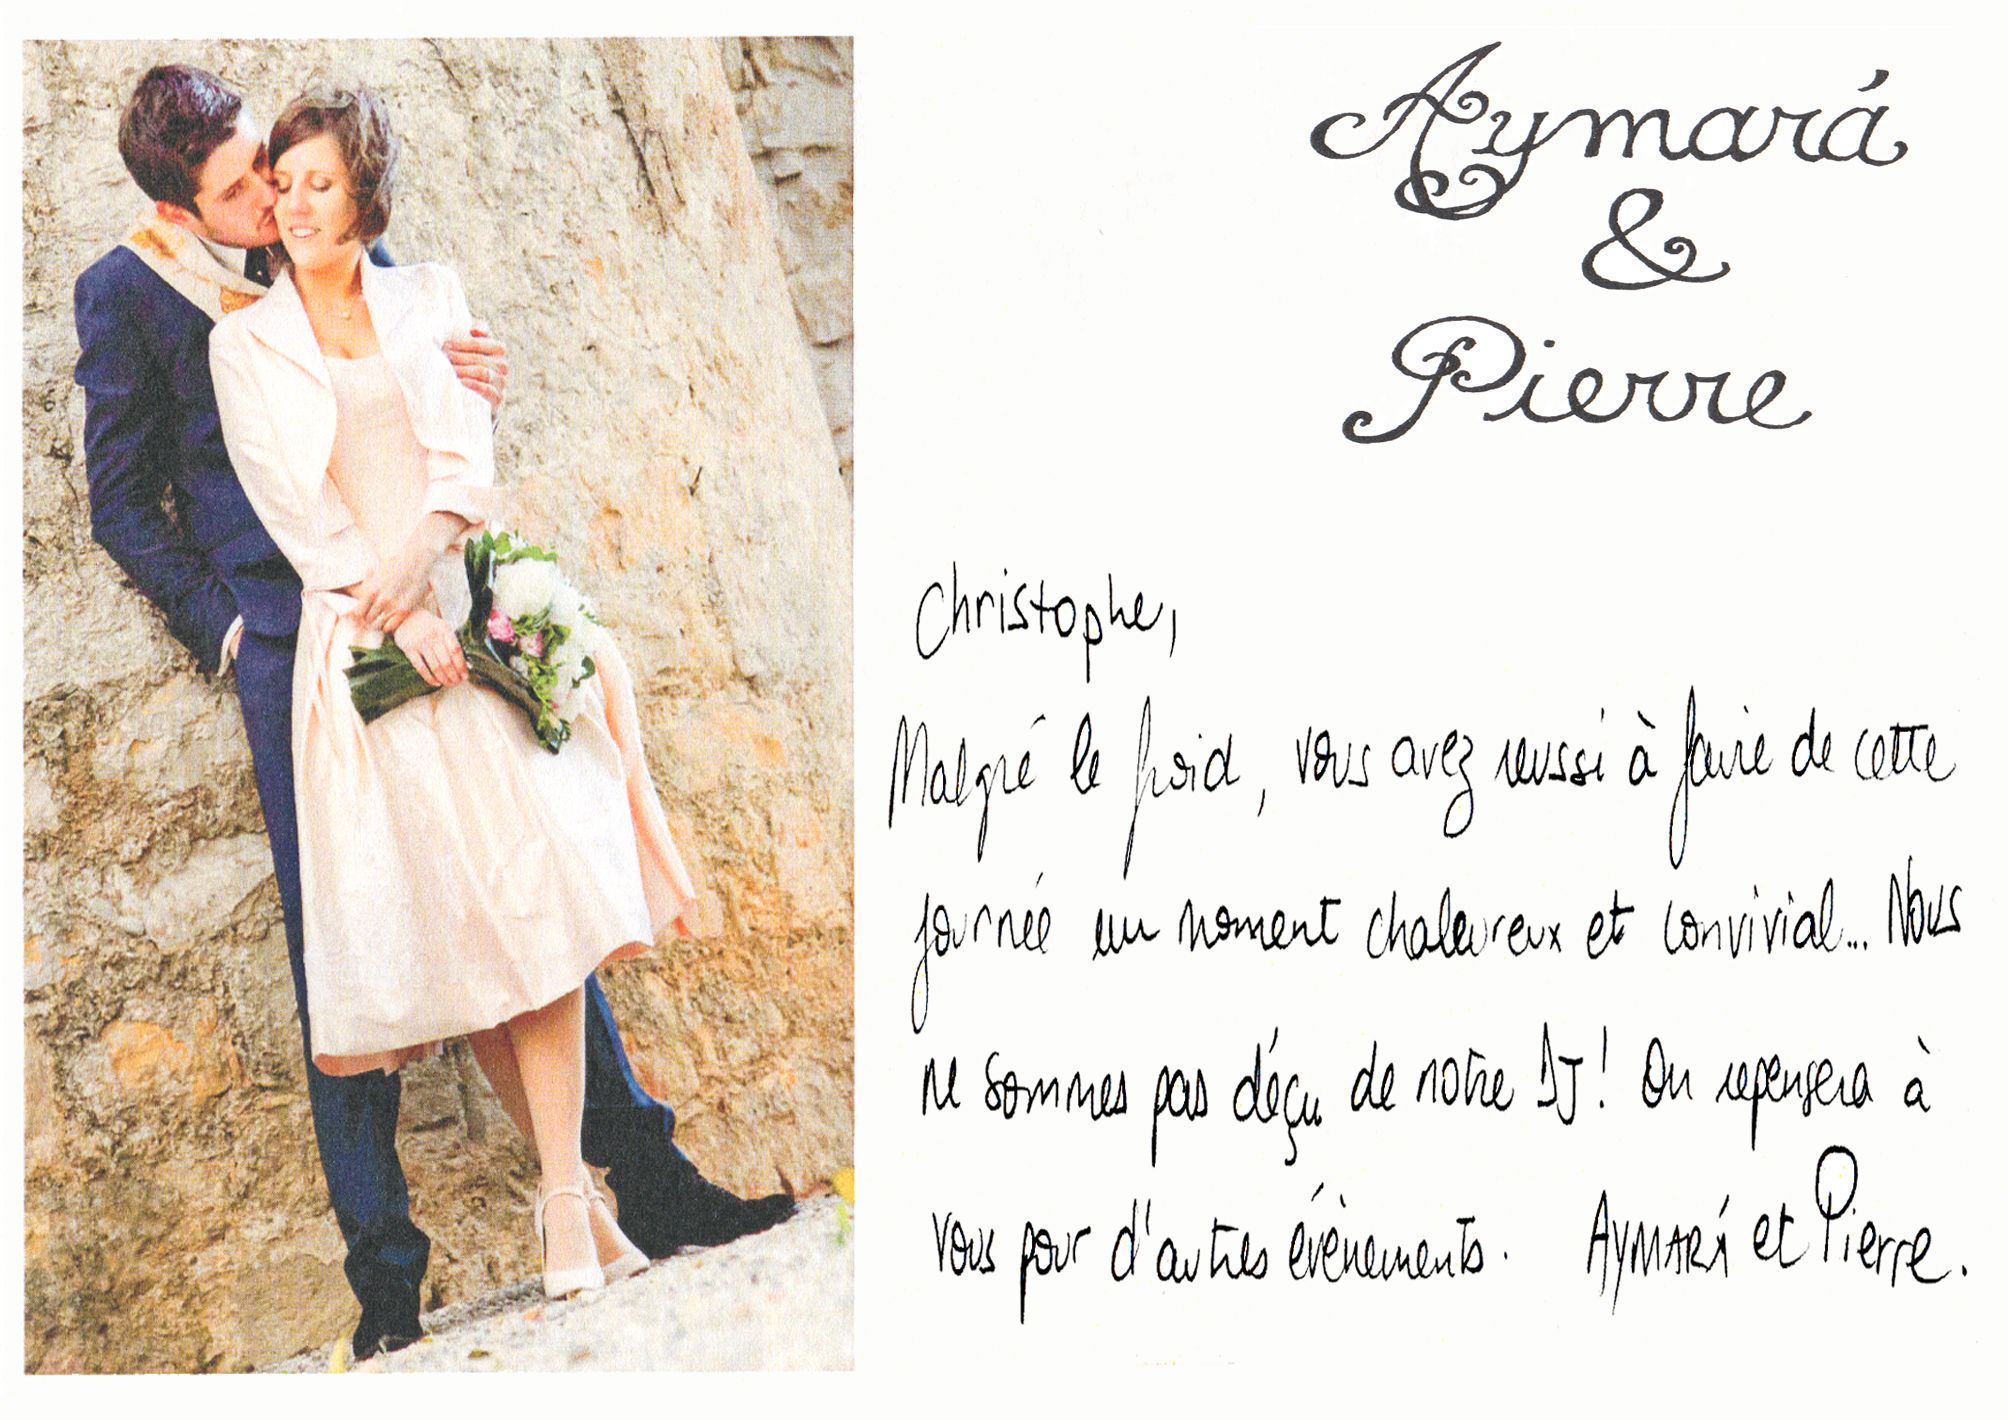 Aymará
&
Pierre
Christophe,
Malgré le froid, vous avez reussi à faire de cette
journée un moment chaleureux et convivial... Nous
ne sommes pas déçu de notre DJ! On repensera à
vous pour d'autres évènements. AYMARÁ et Pierre.